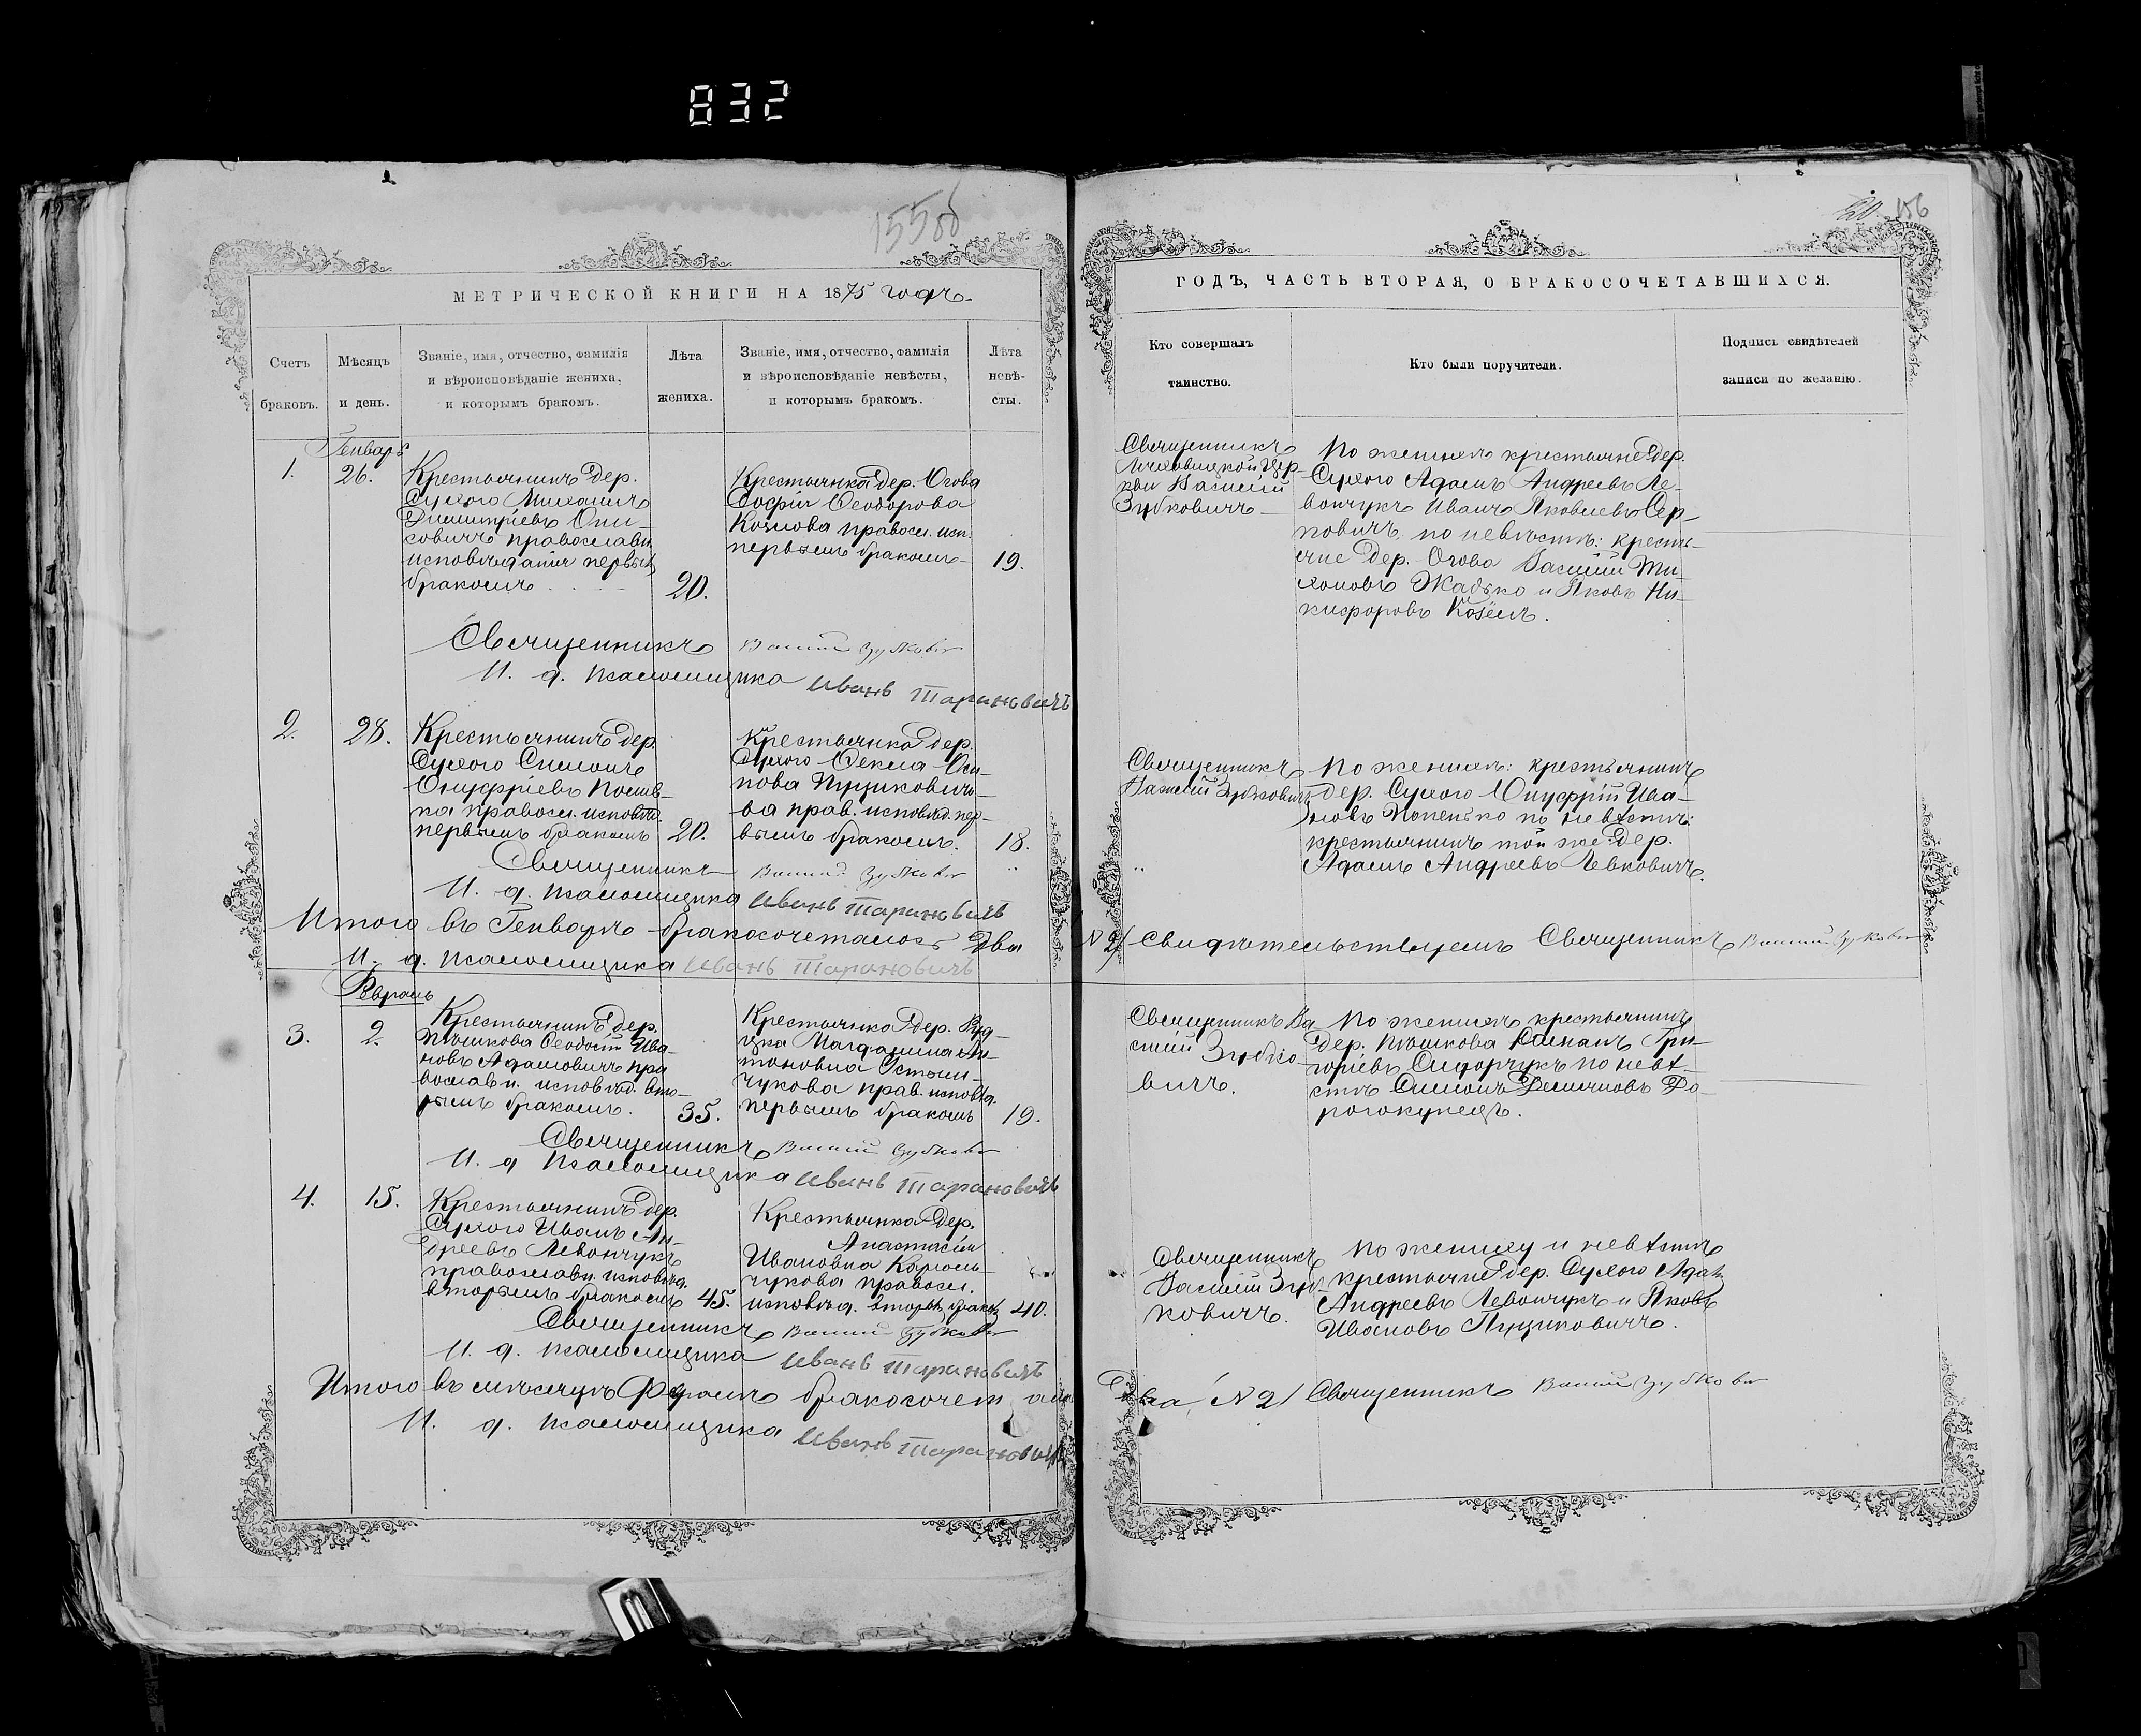 832
155об
156
МЕТРИЧЕСКОЙ КНИГИ НА 1875 годъ.
Счетъ браковъ.
Мѣсяцъ и день.
Званіе, имя, отчество, фамилія
и вѣроисповѣданіе жениха,
и которымъ бракомъ.
Лѣта жениха.
Званіе, имя, отчество, фамилія
и вѣроисповѣданіе невѣсты,
и которымъ бракомъ.
Лѣта невѣ-
сты.
Генварь
1.
26.
Крестьянинъ дер.
Сухого Михаилъ
Димитріевъ Они-
сковичъ православн.
исповѣданія первымъ
бракомъ
20.
Крестьянка дер. Огова
Софія Ѳеодорова
Козлова правосл. исп.
первымъ бракомъ
19.
Священникъ Василій Зубковичъ
И. д. псаломщика Иванъ Тарановичъ
2.
28.
Крестьянинъ дер.
Сухого Симонъ
Онуфріевъ
правосл. исповѣд.
первымъ бракомъ
20.
Крестьянка дер.
Сухого Ѳекла Оси-
пова Пущикович-
ва прав. исповѣд. пер-
вымъ бракомъ.
18.
Священникъ Василій Зубковичъ
И. д. псаломщика Иванъ Тарановичъ
Итого въ Генварѣ бракосочеталось два
И. д. псаломщика Иванъ Тарановичъ
Февраль
3.
2.
Крестьянинъ дер.
Пѣшкова Ѳеодосій Ива-
новъ Адамовичъ пра
вославн. исповѣд. вто-
рымъ бракомъ.
35.
Крестьянка дер. Руд-
Магдалина Ан-
тоновна
чукова прав. исповѣд.
первымъ бракомъ
19.
Священникъ Василій Зубковичъ
И. д. псаломщика Иванъ Тарановичъ
4.
15.
Крестьянинъ дер.
Сухого Иванъ Ан-
дреевъ Левончукъ
православн. исповѣд.
вторымъ бракомъ
45.
Крестьянка дер.
Анастасія
Ивановна Карполь-
чукова правосл.
исповѣд. вторымъ бракомъ
40.
Священникъ Василій Зубковичъ
И. д. псаломщика Иванъ Тарановичъ
Итого въ мѣсяцѣ Февралѣ бракосочеталось
И. д. псаломщика Иванъ Тарановичъ
ГОДЪ, ЧАСТЬ ВТОРАЯ, О БРАКОСОЧЕТАВШИХСЯ.
Кто совершалъ
таинство.
Кто были поручители.
Подпись свидѣтелей
записи по желанію.
Священникъ
Ляховицкой Цер-
кви Василій
Зубковичъ
По женихѣ крестьяне дер.
Сухого Адамъ Андреевъ Ле-
вончукъ Иванъ Яковлевъ Сер-
повичъ, по невѣстѣ: крестья-
яне дер. Огова Василій Ти-
хоновъ Жадько и Яковъ Ни-
кифоровъ Козёлъ.
Священникъ
Василій Зубковичъ
По женихѣ: крестьянинъ
дер. Сухого Онуфрій Ива-
новъ Попенько по невѣстѣ:
крестьянинъ той же дер.
Адамъ Андреевъ Левковичъ.
№ 2/ Свидѣтельствуемъ Священникъ Василій Зубковичъ
Священникъ Ва
силій Зубко-
вичъ.
По женихѣ крестьянинъ
дер. Пѣшкова Степанъ Гри-
горіевъ Сидорчукъ по невѣ-
стѣ Симонъ Демьяновъ До-
рогокупецъ.
Священникъ
Василій Зуб-
ковичъ.
По жениху и невѣстѣ
крестьяне дер. Сухого Адамъ
Андреевъ Левончукъ и Яковъ
Ивановъ Пущиковичъ.
два, № 2/ Священникъ Василій Зубковичъ